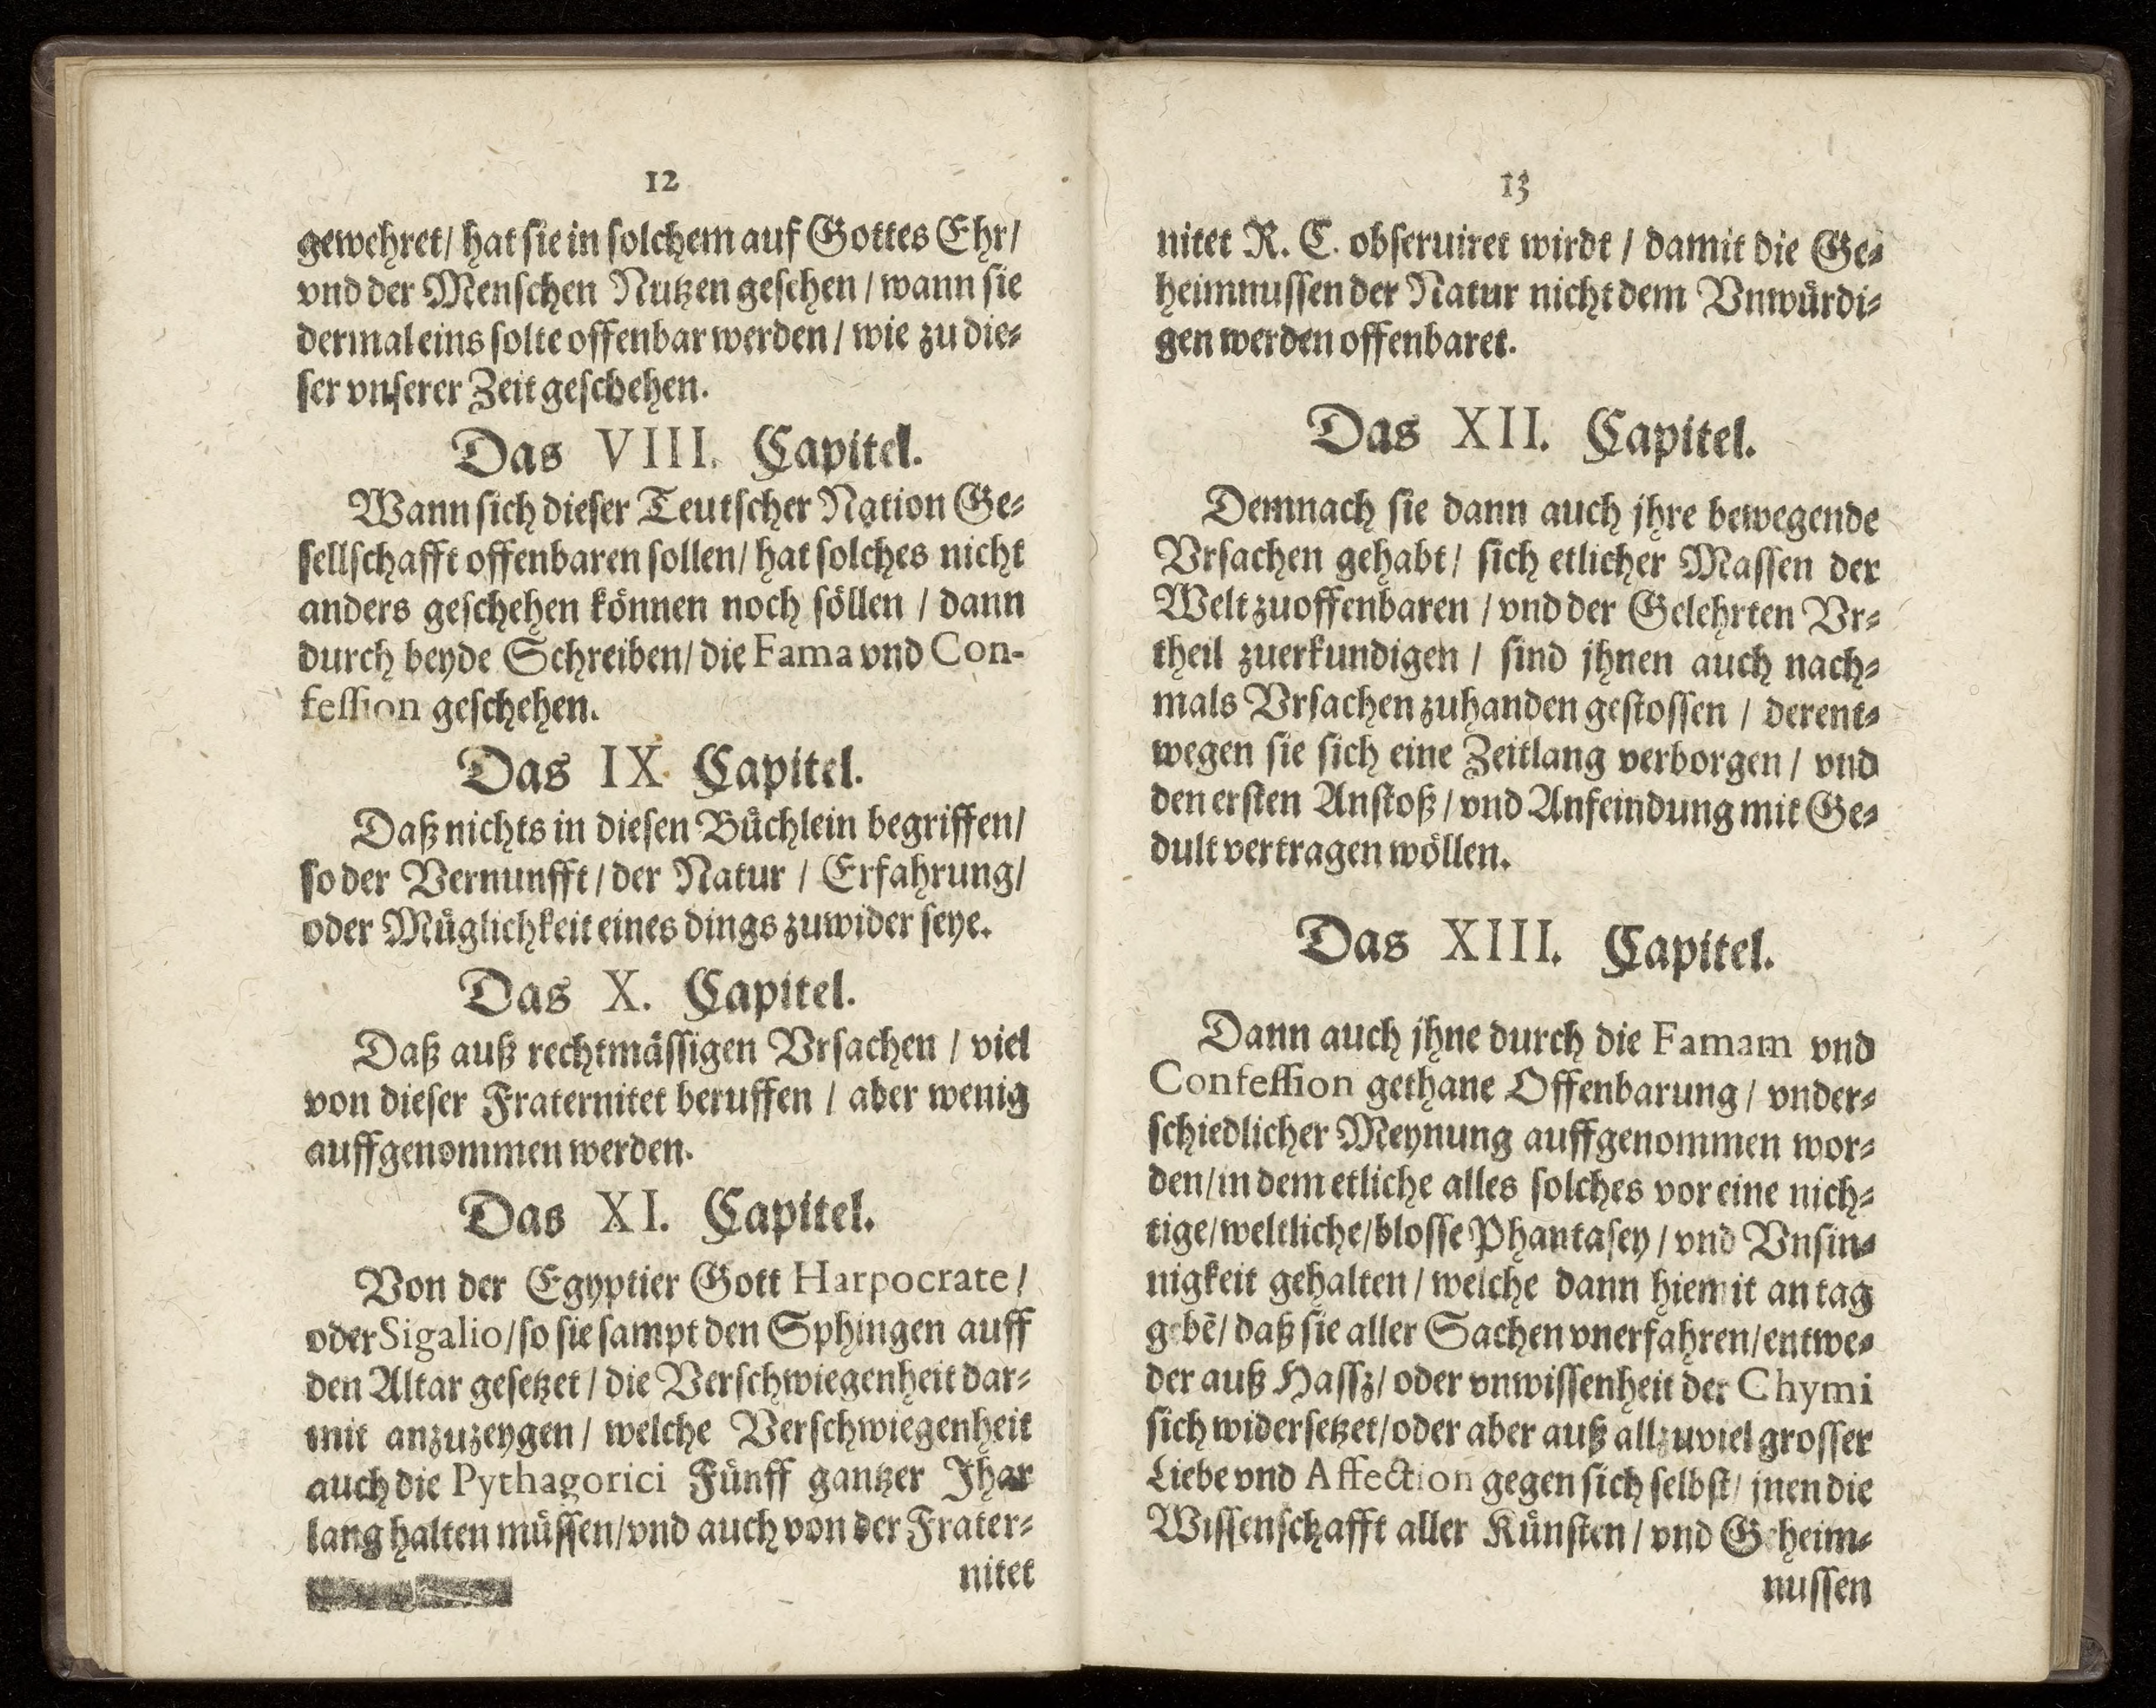 12
gewehret/ hat sie in solchem auf Gottes Ehr/
vnd der Menschen Nutzen gesehen / wann sie
dermaleins solte offenbar werden / wie zu die⸗
ser vnserer Zeit geschehen.
Das VIII. Capitel.
Wann sich dieser Teutscher Nation Ge⸗
sellschafft offenbaren sollen/ hat solches nicht
anders geschehen können noch söllen / dann
durch beyde Schreiben/ die Fama vnd Con-
fession geschehen.
Das IX. Capitel.
Daß nichts in diesen Büchlein begriffen/
so der Vernunfft / der Natur / Erfahrung/
oder Müglichkeit eines dings zuwider seye.
Das X. Capitel.
Daß auß rechtmässigen Vrsachen / viel
von dieser Fraternitet beruffen / aber wenig
auffgenommen werden.
Das XI. Capitel.
Von der Egyptier Gott Harpocrate /
oder Sigalio/so sie sampt den Sphingen auff
den Altar gesetzet / die Verschwiegenheit dar⸗
mit anzuzeygen / welche Verschwiegenheit
auch die Pythagorici Fünff gantzer Jhar
lang halten müssen/vnd auch von der Frater⸗
nitet
13
nitet R. C. obseruiret wirdt / damit die Ge⸗
heimnussen der Natur nicht dem Vnwürdi⸗
gen werden offenbaret.
Das XII. Capitel.
Demnach sie dann auch jhre bewegende
Vrsachen gehabt/ sich etlicher Massen der
Welt zuoffenbaren / vnd der Gelehrten Vr⸗
theil zuerkundigen / sind jhnen auch nach⸗
mals Vrsachen zuhanden gestossen / derent⸗
wegen sie sich eine Zeitlang verborgen / vnd
den ersten Anstoß / vnd Anfeindung mit Ge⸗
dult vertragen wöllen.
Das XIII. Capitel.
Dann auch jhne durch die Famam vnd
Confession gethane Offenbarung / vnder⸗
schiedlicher Meynung auffgenommen wor⸗
den/in dem etliche alles solches vor eine nich⸗
tige/weltliche/blosse Phantasey / vnd Vnsin⸗
nigkeit gehalten / welche dann hiemit an tag
gebẽ/ daß sie aller Sachen vnerfahren/entwe⸗
der auß Hassz/ oder vnwissenheit der Chymi
sich widersetzet/oder aber auß allzuviel grosser
Liebe vnd Affection gegen sich selbst/ jnen die
Wissenschafft aller Künsten / vnd Geheim⸗
nussen